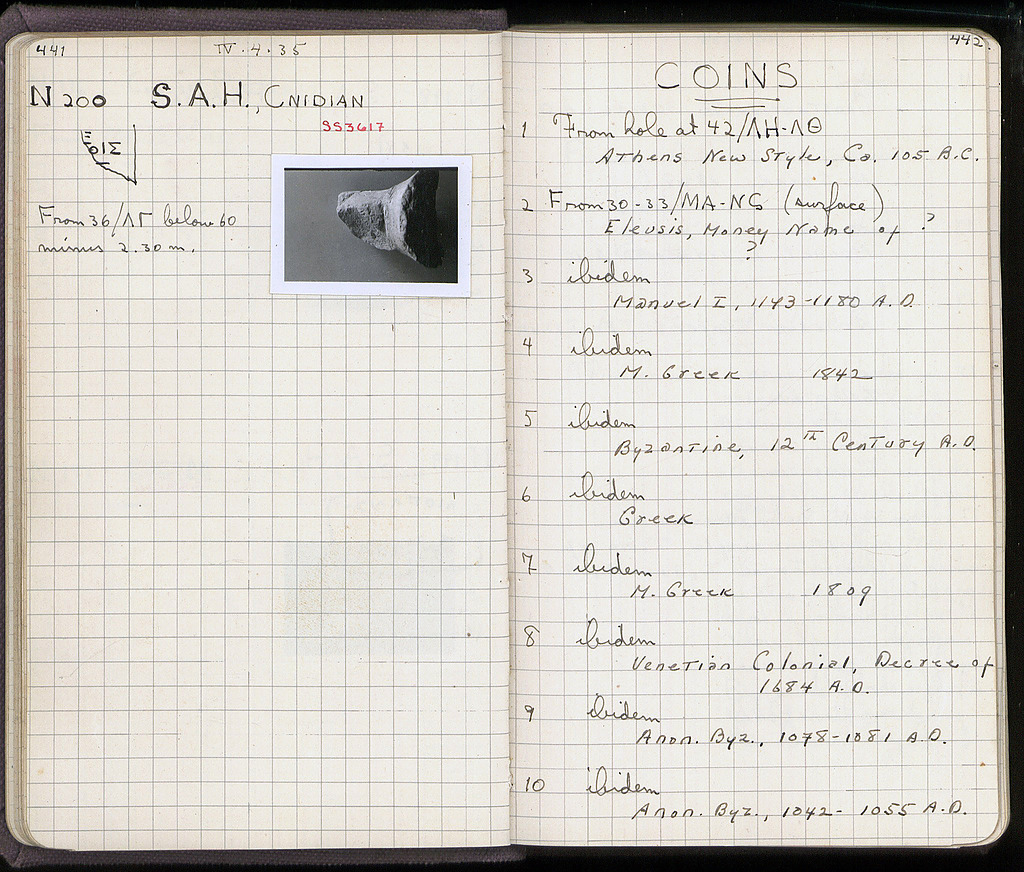 441
IV.4.35
N 200 S.A.H., CNIDIAN
SS3617
From 36/ΛΓ below 60
minus 2.30 m.
442
COINS
1 From hole at 42/ΛH-ΛΘ
Athens New Style, Ca. 105 B.C.
2 From 30-33/MA-NS (surface)
Eleusis, Money Name of ?
?
3 ibidem
Manuel I, 1143-1180 A.D.
4 ibidem
M. Greek 1842
5 ibidem
Byzantine, 12th Century A.D.
6 ibidem
Greek
7 ibidem
M. Greek 1809
8 ibidem
Venetian Colonial, Decree of
1684 A.D.
9 ibidem
Anon. Byz., 1078-1081 A.D.
10 ibidem
Anon. Byz., 1042-1055 A.D.